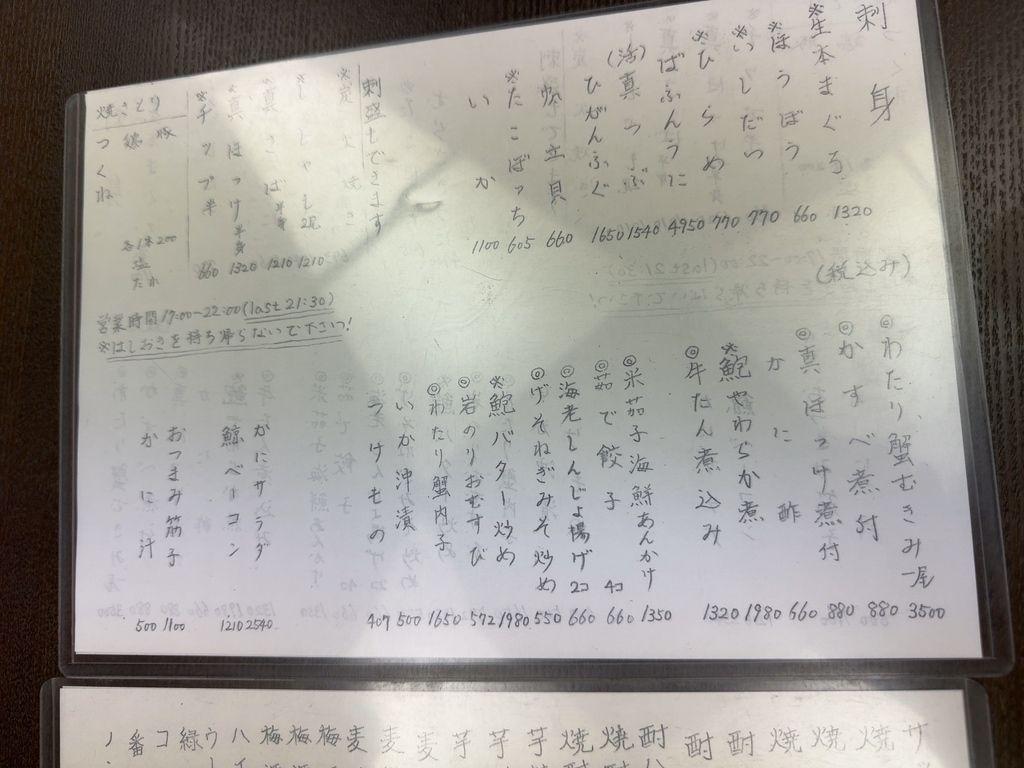 刺身
※生本まぐろ 1320
※ほうぼう 660
※いしだい 770
※ひらめ 770
ばふんうに 4950
(活)真つぶ 1540
ひがんふぐ 1650
※帆立貝 660
※たこばっち 605
いか 1100
刺盛もできます
2尾 1210
さば半身 1210
真ほっけ半身 1320
※チップ半 660
焼きとり
鶏 豚
つくね
各1本200
塩
たれ
(税込み)
営業時間17:00~22:00(last 21:30)
※はしおきを持ち帰らないで下さいっ!
◎わたり蟹むきみ一尾 3500
◎かすべ煮付 880
◎真ほっけ煮付 880
かに酢 660
※鮑やわらか煮 1980
◎牛たん煮込み 1320
◎米茄子海鮮あんかけ 1350
◎茹で餃子 4コ 660
◎海老しんじょ揚げ 2コ 660
◎げそねぎみそ炒め 550
※鮑バター炒め 1980
◎岩のりおむすび 572
◎わたり蟹内子 1650
いか沖漬 500
つけもの 407
かにサラダ 2540
鯨ベーコン 1210
おつまみ筋子 1100
かに汁 500